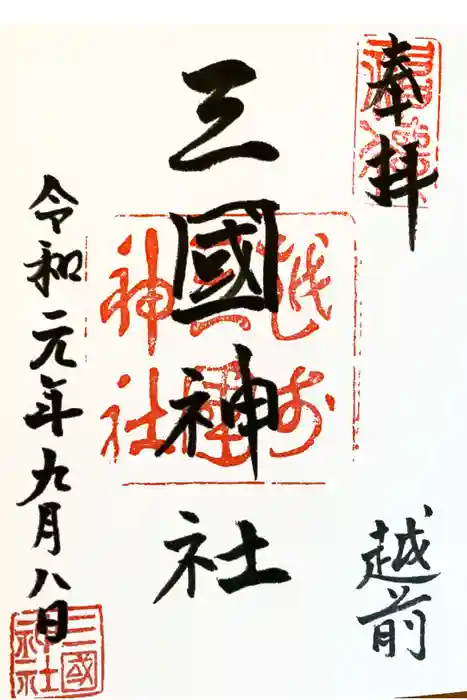 奉拝
越前
三國神社
越前
三國
神社
令和元年九月八日
三國
神社